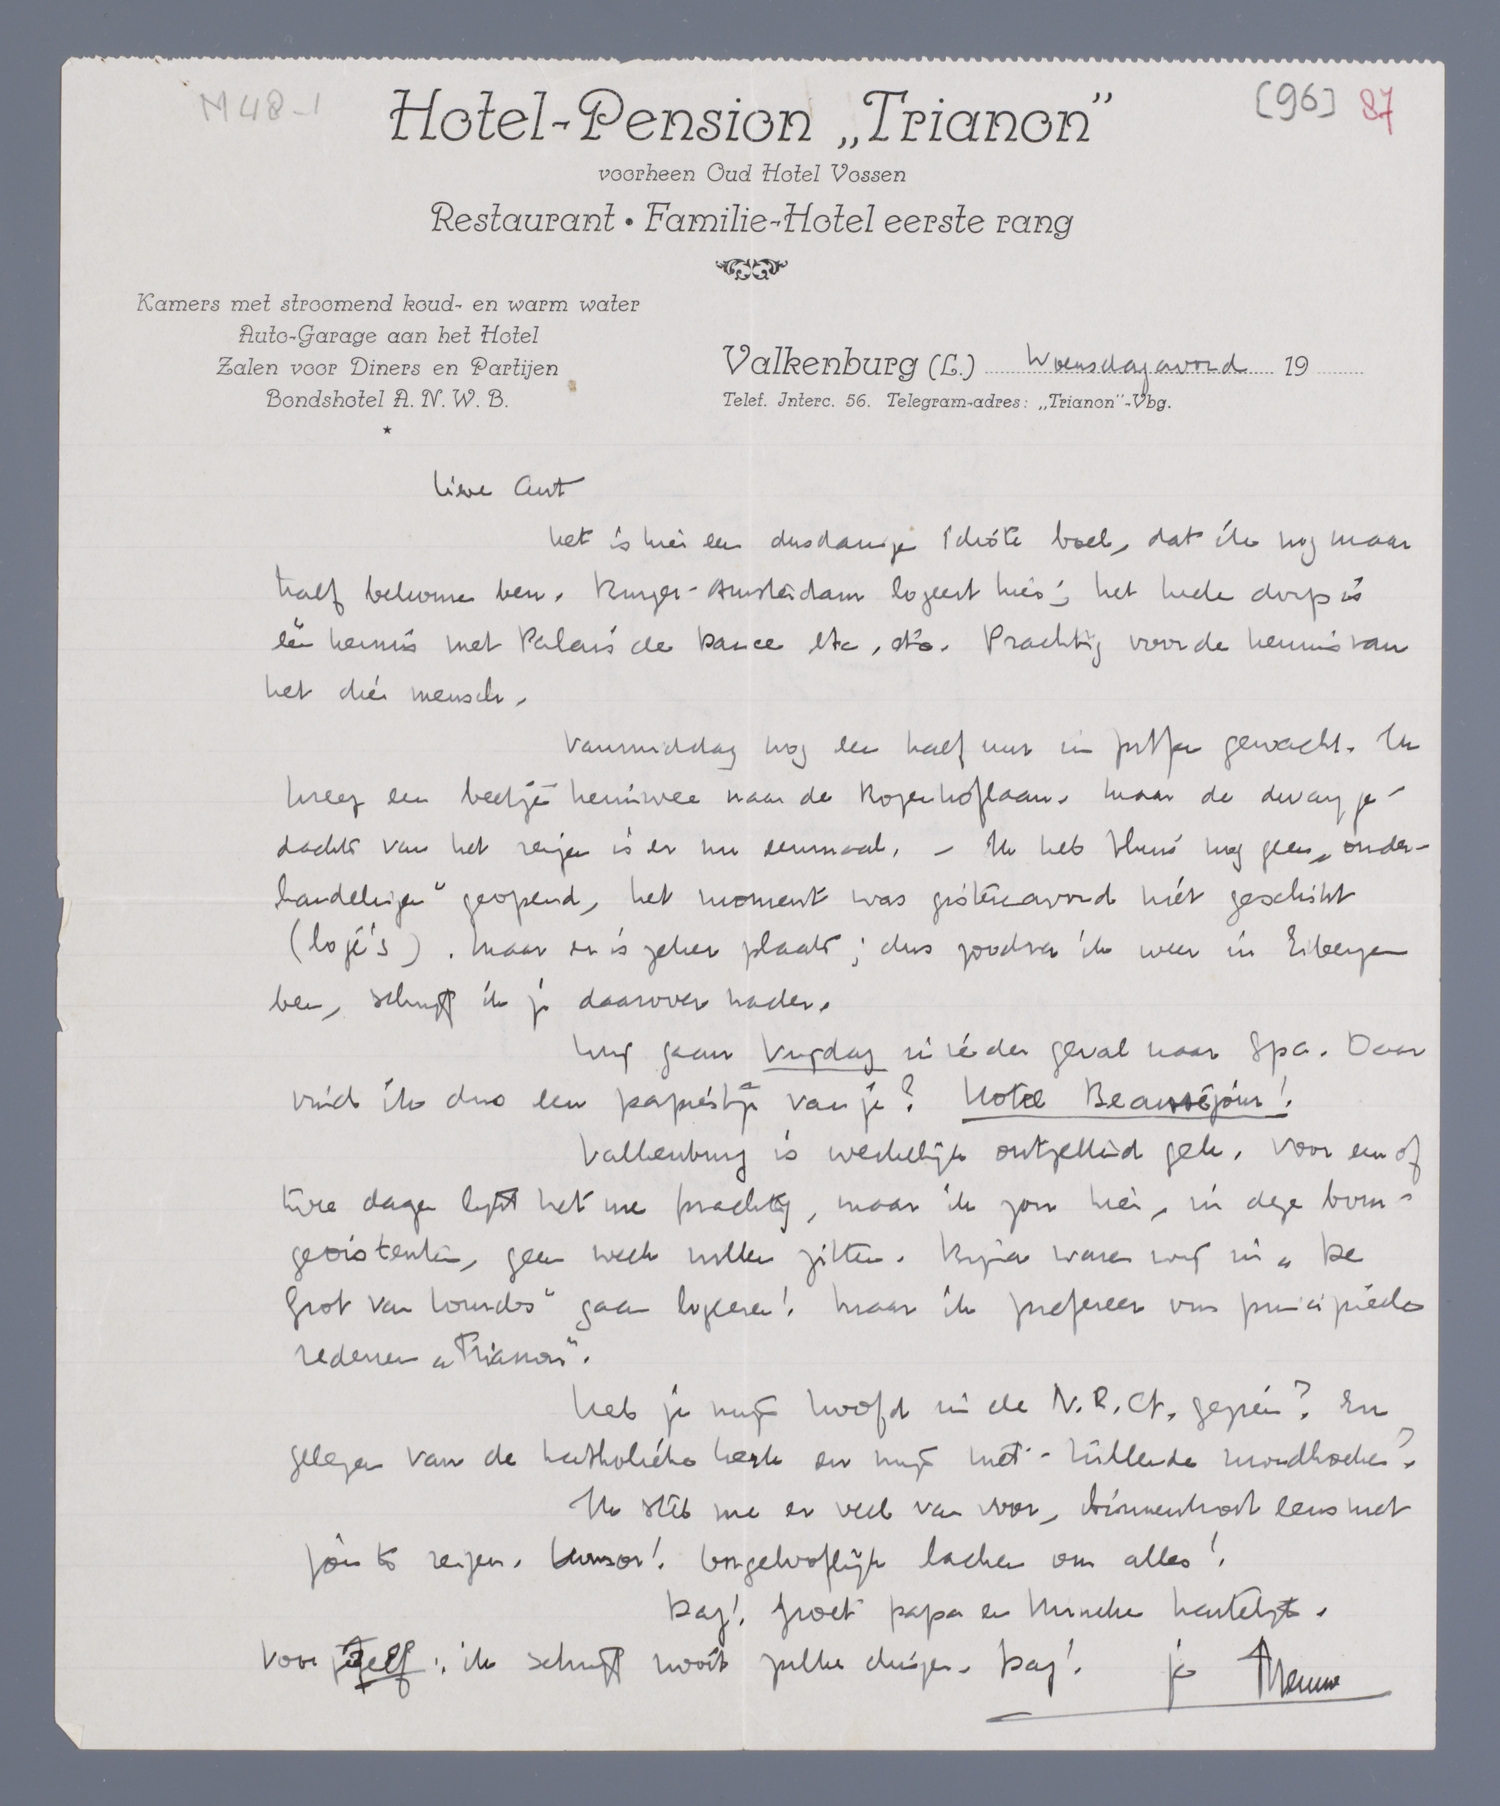 M48-1
[96] 87
Hotel-Pension „Trianon”
voorheen Oud Hotel Vossen
Restaurant • Familie-Hotel eerste rang
Kamers met stroomend koud- en warm water
Auto-Garage aan het Hotel
Zalen voor Diners en Partijen
Bondshotel A. N. W. B.
Valkenburg (L.) Woensdagavond 19
Telef. Interc. 56. Telegram-adres: „Trianon”-Vbg.
Lieve Ant
het is hier een dusdanige idiote boel, dat ik nog maar
half bekomen ben. Kruger-Amsterdam logeert hier; het heele dorp is
één kermis met Palais de Danse etc, etc. Prachtig voor de kennis van
het dier mensch.
Vanmiddag nog een half uur in gewacht. Ik
kreeg een beetje heimwee naar de Rozenhoflaan. Maar de dwangge-
dachte van het reizen is er nu eenmaal. – Ik heb thuis nog geen „onder-
handelingen” geopend, het moment was gisterenavond niet geschikt
(logé's). Maar er is zeker plaats; dus zoodra ik weer in Eibergen
ben, schrijf ik je daarover nader.
Wij gaan Vrijdag in ieder geval naar Spa. Daar
vind ik dus een papiertje van je? Hotel Beauséjour!
Valkenburg is werkelijk ontzettend gek. Voor een of
twee dagen lijkt het me prachtig, maar ik zou hier, in deze
geen week willen zitten. Bijna waren wij in „De
Grot van Lourdes” gaan logeeren! Maar ik prefereer om principieele
redenen „Trianon”.
Heb je mijn hoofd in de N.R.Ct. gezien? En
gelezen van de katholieke kerk en mijn niet-trillende mondhoeken?
Ik stel me er veel van voor, binnenkort eens met
jou te reizen. Humor! Ongeloofelijk lachen om alles!
Dag! Groet papa en hartelijk.
Voor jezelf: ik schrijf nooit zulke dingen. Dag! je Menno